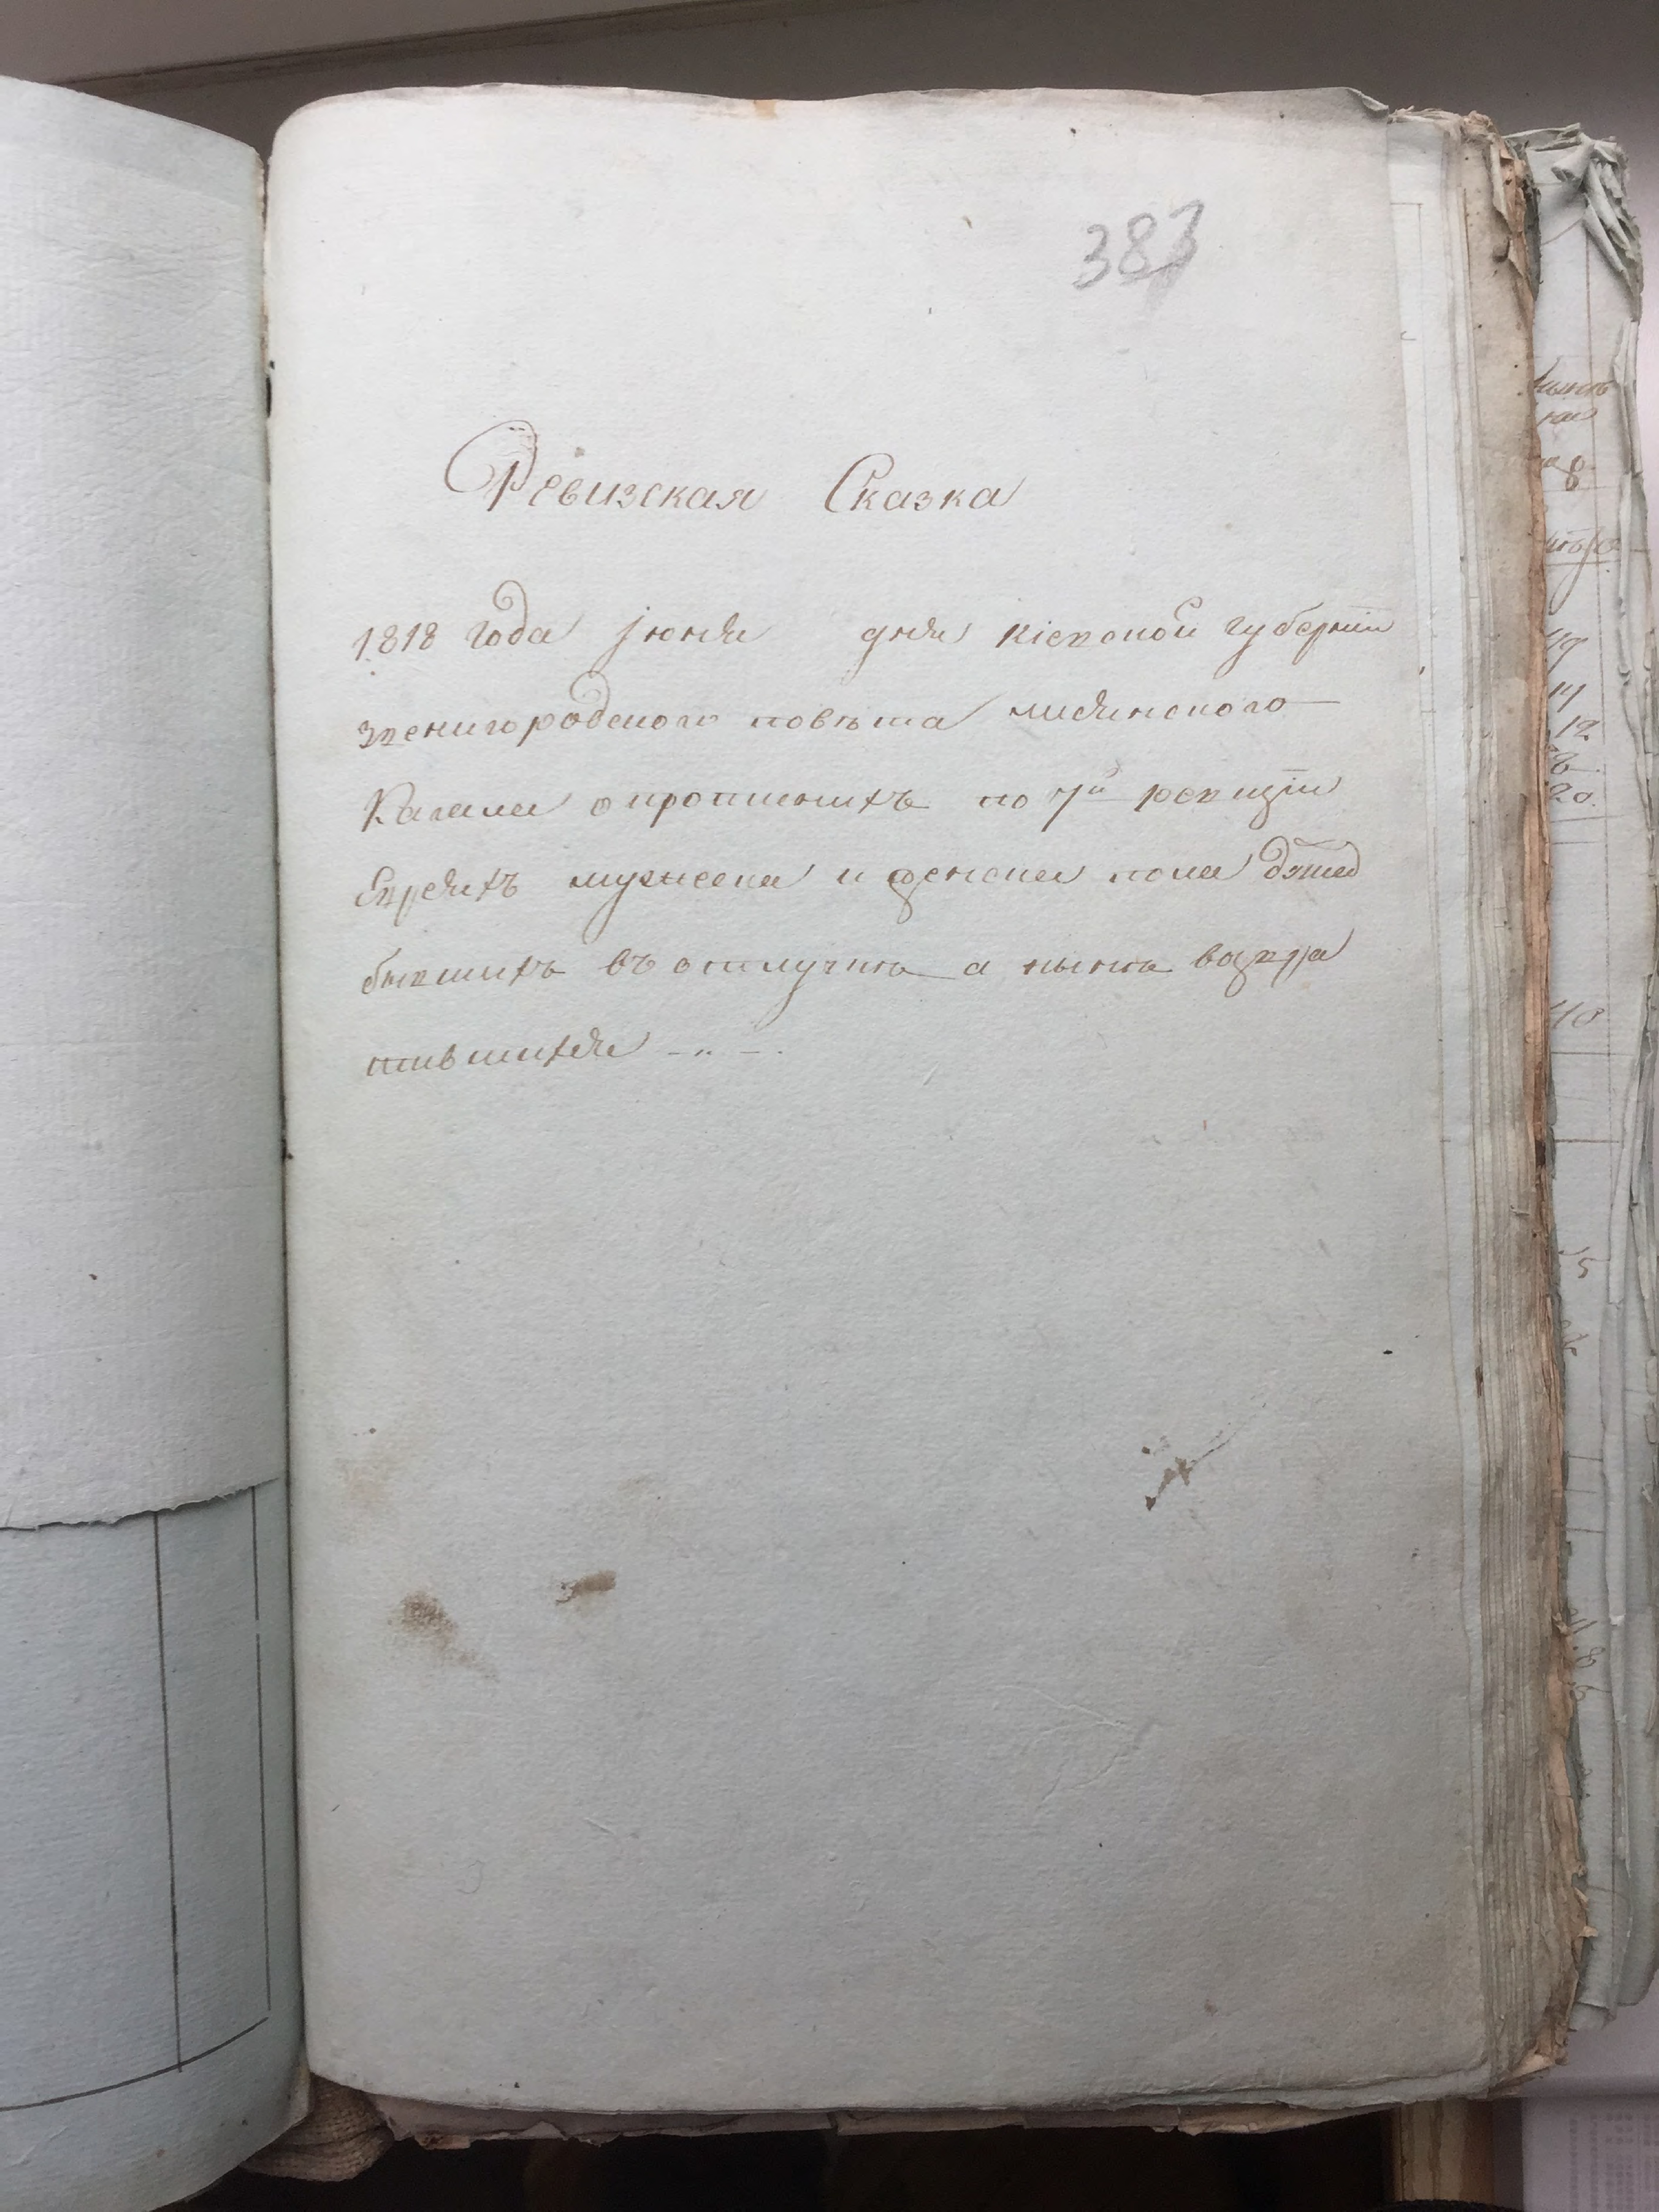 383
Ревизская Сказка
1818 года июня дня кіевской губерніи
звенигородского повѣта лисянского
Кагала о прописнихъ по 7й ревизіи
Евреяхъ мужеска и женска пола
бывшихъ въ отлучкѣ а нынѣ возвра
тившихся -„-.